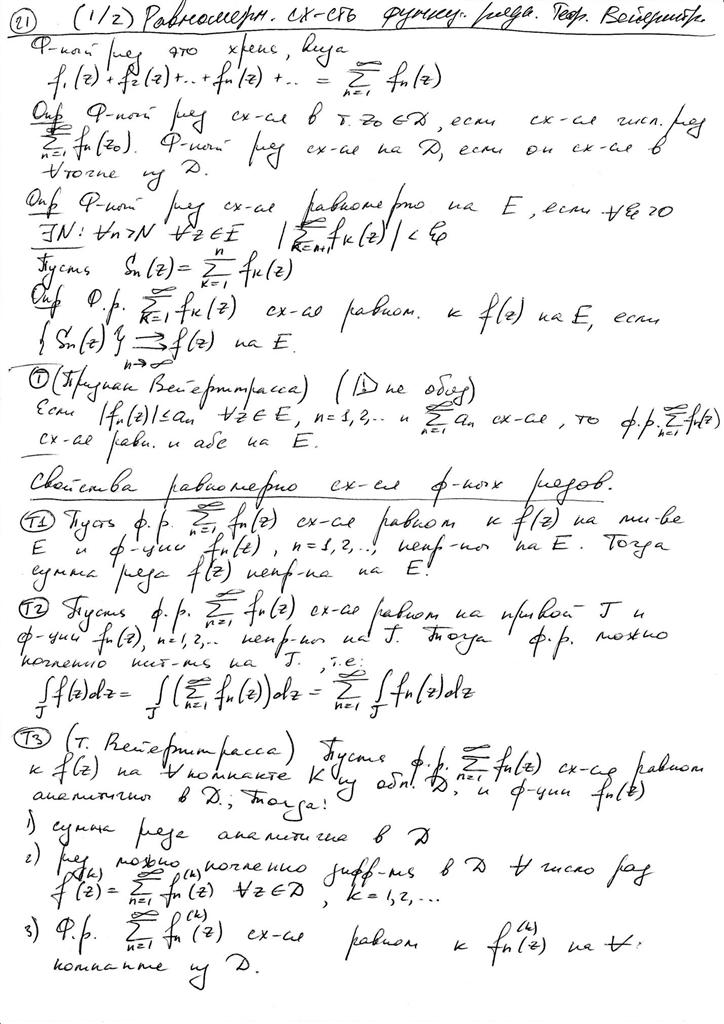 21 (1/2) Равномерн. сх-сть функц. ряда. Теор. Вейерштр.
Ф-ный ряд это хрень, вида
f₁(z) + f₂(z) + .. + fn(z) + .. = ∑_{n=1}^∞ fn(z)
Опр Ф-ный ряд сх-ся в т. z₀ ∈ D, если сх-ся числ. ряд
∑_{n=1}^∞ fn(z₀). Ф-ный ряд сх-ся на D, если он сх-ся в
∀ точке из D.
Опр Ф-ный ряд сх-ся равномерно на E, если ∀ε>0
∃N: ∀n>N ∀z∈E |∑_{k=n+1}^∞ fk(z)| < ε
Пусть Sn(z) = ∑_{k=1}^n fk(z)
Опр Ф.р. ∑_{k=1}^∞ fk(z) сх-ся равном. к f(z) на E, если
{Sn(z)} ⇉_{n→∞} f(z) на E.
Т (Признак Вейерштрасса) (D не обл)
Если |fn(z)| ≤ an ∀z∈E, n=1,2,.. и ∑_{n=1}^∞ an сх-ся, то ф.р. ∑_{n=1}^∞ fn(z)
сх-ся равн. и абс на E.
Свойства равномерно сх-ся ф-ных рядов.
Т1 Пусть ф.р. ∑_{n=1}^∞ fn(z) сх-ся равном к f(z) на мн-ве
E и ф-ции fn(z), n=1,2,.., непр-ны на E. Тогда
сумма ряда f(z) непр-на на E.
Т2 Пусть ф.р. ∑_{n=1}^∞ fn(z) сх-ся равном на кривой J и
ф-ции fn(z), n=1,2,.. непр-ны на J. Тогда ф.р. можно
почленно инт-ть на J., т.е:
∫_J f(z)dz = ∫_J (∑_{n=1}^∞ fn(z))dz = ∑_{n=1}^∞ ∫_J fn(z)dz
Т3 (т. Вейерштрасса) Пусть ф.р. ∑_{n=1}^∞ fn(z) сх-ся равном
к f(z) на ∀ компакте K из обл. D, и ф-ции fn(z)
аналитичны в D.; Тогда:
1) сумма ряда аналитична в D
2) ряд можно почленно дифф-ть в D ∀ число раз
f^(k)(z) = ∑_{n=1}^∞ fn^(k)(z) ∀z∈D, k=1,2,...
3) Ф.р. ∑_{n=1}^∞ fn^(k)(z) сх-ся равном к fn^(k)(z) на ∀
компакте из D.